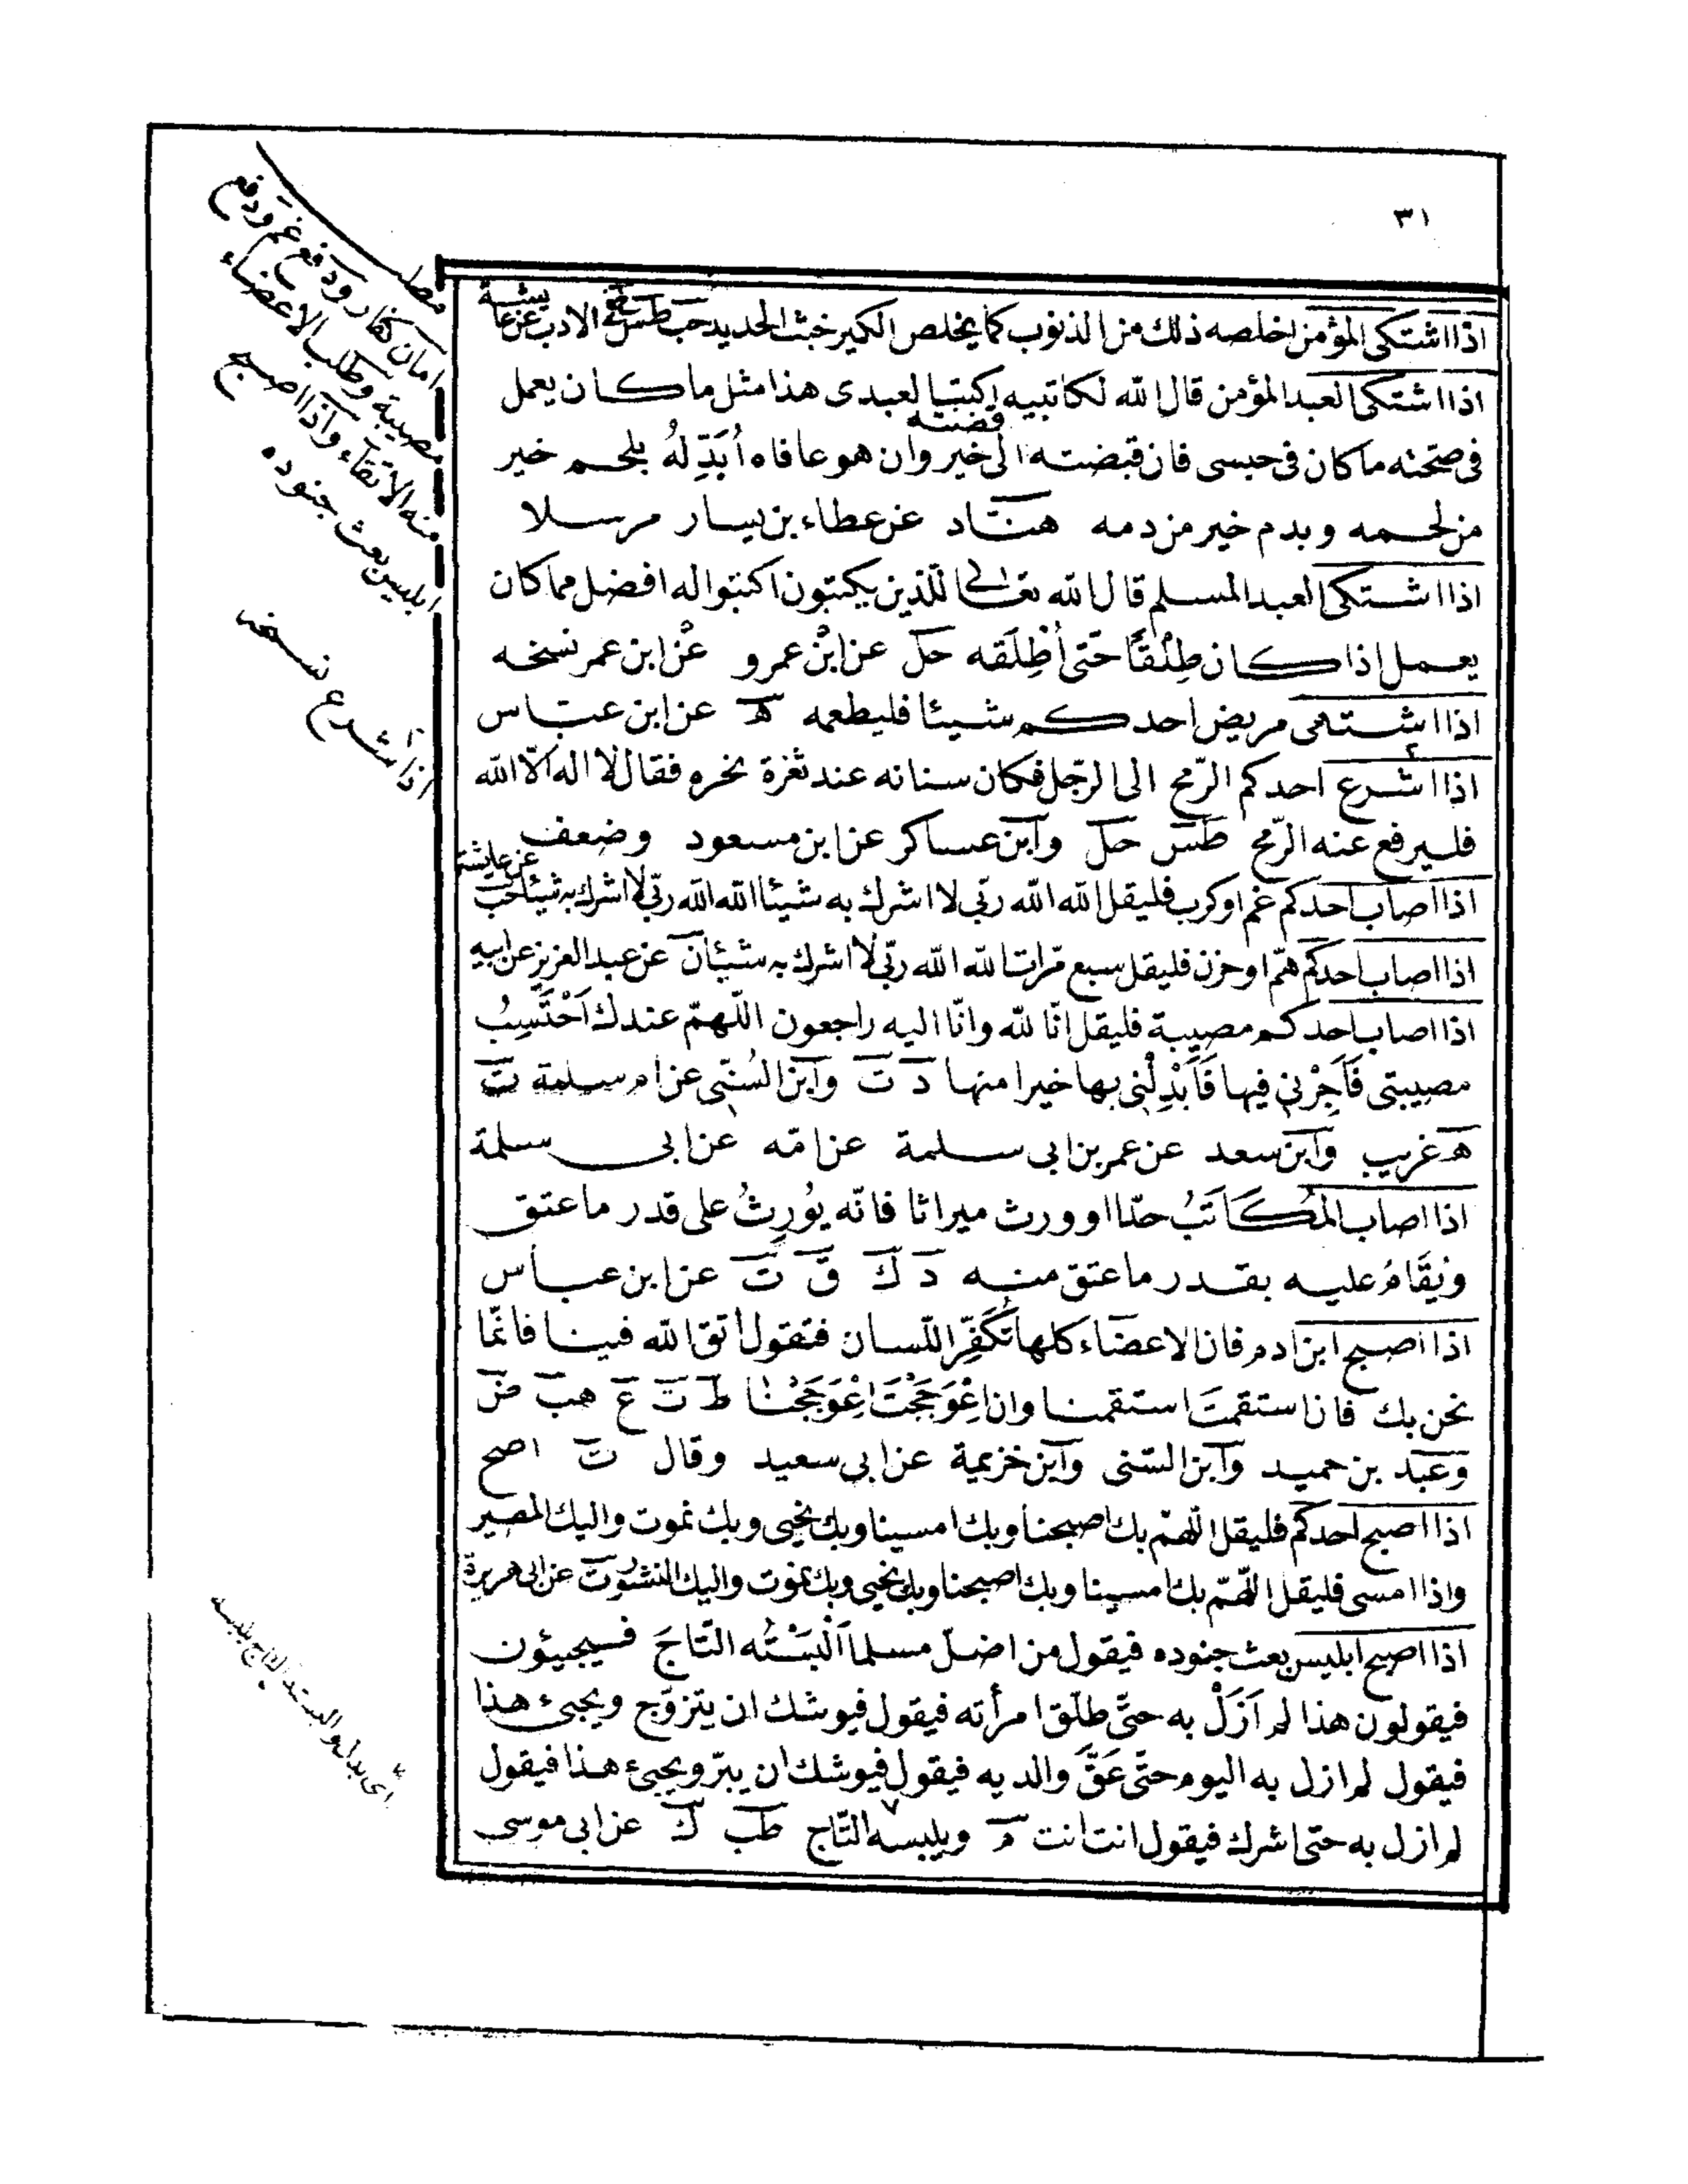 ٣١
اذا اشتكى المؤمن اخلصه ذلك من الذنوب كما يخلص الكير خبث الحديد حب طس خ فى الادب عن عايشة
اذا اشتكى العبد المؤمن قال الله لكاتبيه اكتبا لعبدى هذا مثل ما كان يعمل
فى صحته ما كان فى حبسى فان قبضته الى خير وان هو عافاه اُبَدِّلهُ بلحم خير
من لحمه وبدم خير من دمه هنّاد عن عطاء بن يسار مرسلا
اذا اشتكى العبد المسلم قال الله تعالى للّذين يكتبون اكتبوا له افضل مما كان
يعمل اذا كان طِلْقًا حَتى اُطْلِقه حل عن ابن عمرو عن ابن عمر نسخه
اذا اشتهى مريض احدكم شيئا فليطعمه ه عن ابن عبّاس
اذا اشرع احدكم الرّمح الى الرّجل فكان سنانه عند ثغرة نحره فقال لا اله الّا الله
فليرفع عنه الرّمح طس حل وابن عساكر عن ابن مسعود وضعف
اذا اصاب احدكم غم او كرب فليقل الله الله ربّى لا اشرك به شيئا الله الله ربّى لا اشرك به شيئا حب عن عايشة
اذا اصاب احدكم همّ او حزن فليقل سبع مرّات الله الله ربّى لا اشرك به شيئا ن عن عبد العزيز عن ابيه
اذا اصاب احدكم مصيبة فليقل انّا لله وانّا اليه راجعون اللّهمّ عندك اَحْتَسِبُ
مصيبتى فَاَجِرْنى فيها فَاَبْدِلْنى بها خيرا منها د ت وابن السُنّى عن ام سلمة ت
ه غريب وابن سعد عن عمر بن ابى سلمة عن امّه عن ابى سلمة
اذا اصاب المُكَاتَبُ حدّا او ورث ميراثا فانّه يُورِثُ على قدر ما عتق
ويُقَامُ عليه بقدر ما عتق منه د ك ق ت عن ابن عباس
اذا اصبح ابن ادم فان الاعضاء كلها تُكَفِّرُ اللّسان فتقول اتق الله فينا فانّما
نحن بك فان استقمتَ استقمنا وان اعْوَجَجْتَ اعْوَجَجْنَا ط ت ع هب ض
وعبد بن حميد وابن السّنى وابن خزيمة عن ابى سعيد وقال ت اصح
اذا اصبح احدكم فليقل اللّهمّ بك اصبحنا وبك امسينا وبك نحيى وبك نموت واليك المصير
واذا امسى فليقل اللّهمّ بك امسينا وبك اصبحنا وبك نحيى وبك نموت واليك النشور ت عن ابى هريرة
اذا اصبح ابليس بعث جنوده فيقول من اضلّ مسلما اَلْبَسْتُه التّاجَ فيجيئون
فيقولون هذا لم اَزَلْ به حتّى طلّق امرأته فيقول فيوشك ان يتزوّج ويجيئ هذا
فيقول لم ازل به اليوم حتّى عَقَّ والديه فيقول فيوشك ان يبرّ ويجيئ هذا فيقول
لم ازل به حتى اشرك فيقول انت انت م ويلبسه التّاج طب ك عن ابى موسى
قضيته
مطلب
امان كفار ودفع غم ودفع
مصيبة وطلب الاعضاء
منه الاتقاء واذا اصبح
ابليس بعث جنوده
اذا شرع نسخه
أى بدل والبسته التاج يلبسه